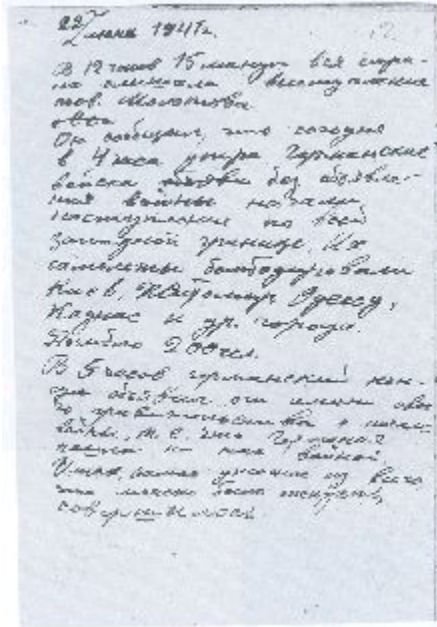 22 июня 1941 г.
В 12 часов 15 минут вся стра-
на слышала выступление
тов. Молотова
Он сообщил, что сегодня
в 4 часа утра Германские
войска без объявле-
ния войны начали
наступление по всей
западной границе. Их
самолеты бомбадировали
Киев, Житомир, Одессу,
Каунас и др. города.
Погибло 200 чел.
В 5 часов германский кон-
объявил от имени сво-
его правительства о начале
войны, т.е. что Германия
пошла на нас войной
Итак, самое ужасное из всего
что можно было ожидать,
совершилось.